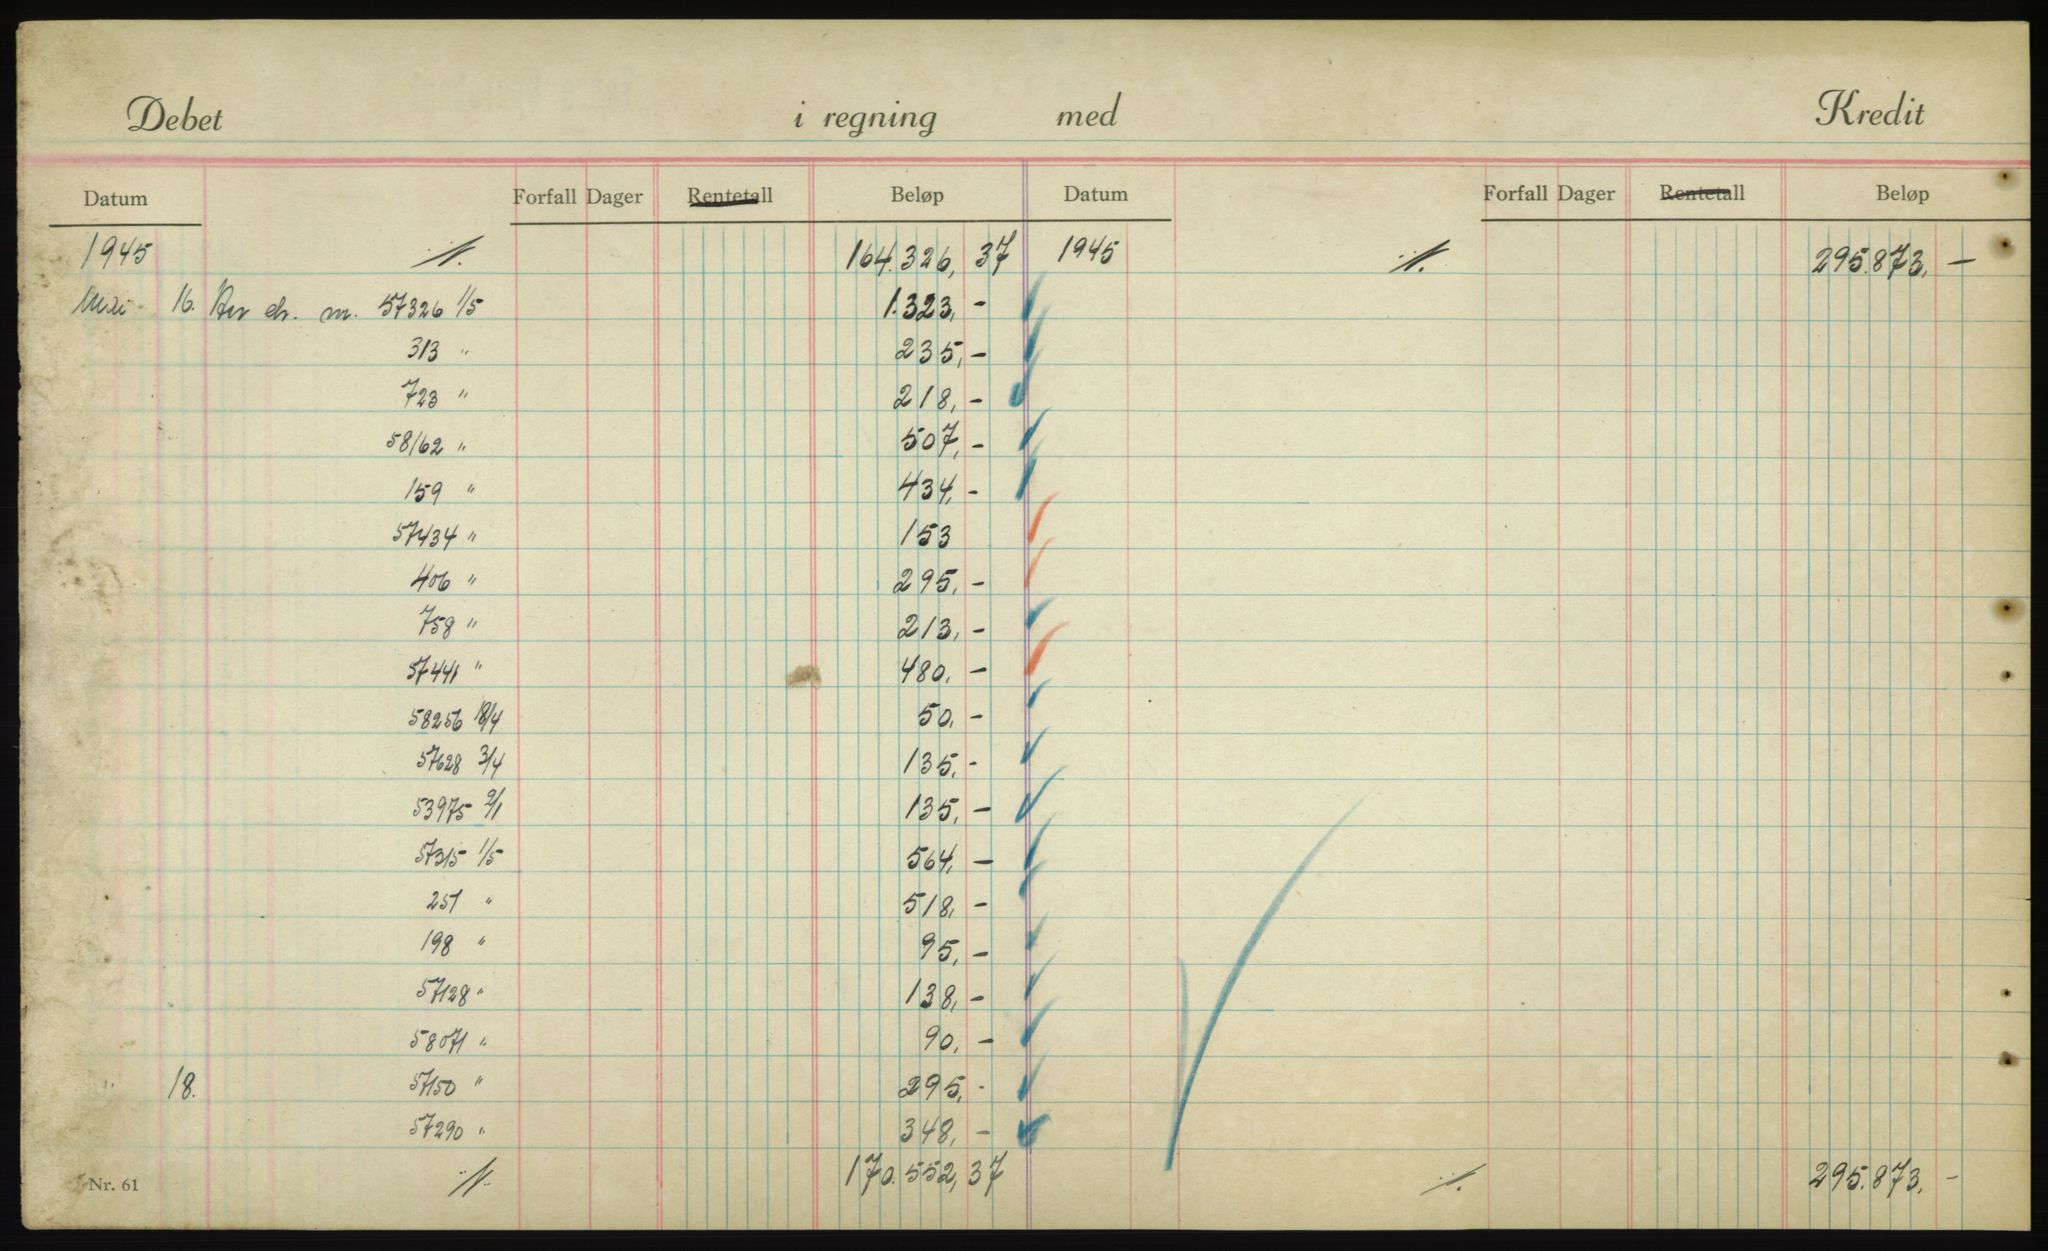 Debet i regning med Kredit
Datum Forfall Dager Rentetall Beløp Datum Forfall Dager Rentetall Beløp
1945 164.326,37 1945 295.873,—
Mai 16. 57326 1/5 1.323,-
313 " 235,-
723 " 218,-
58162 " 507,-
159 " 434,-
57434 " 153
406 " 295,-
758 " 213,-
57441 " 480,-
58256 18/4 50,-
57628 3/4 135,-
53975 2/1 135,-
57315 1/5 564,-
251 " 518,-
198 " 95,-
57128 " 138,-
58071 " 90,-
" 18. 57150 " 295,-
57290 " 348,-
Nr. 61 170.552,37 295.873,-